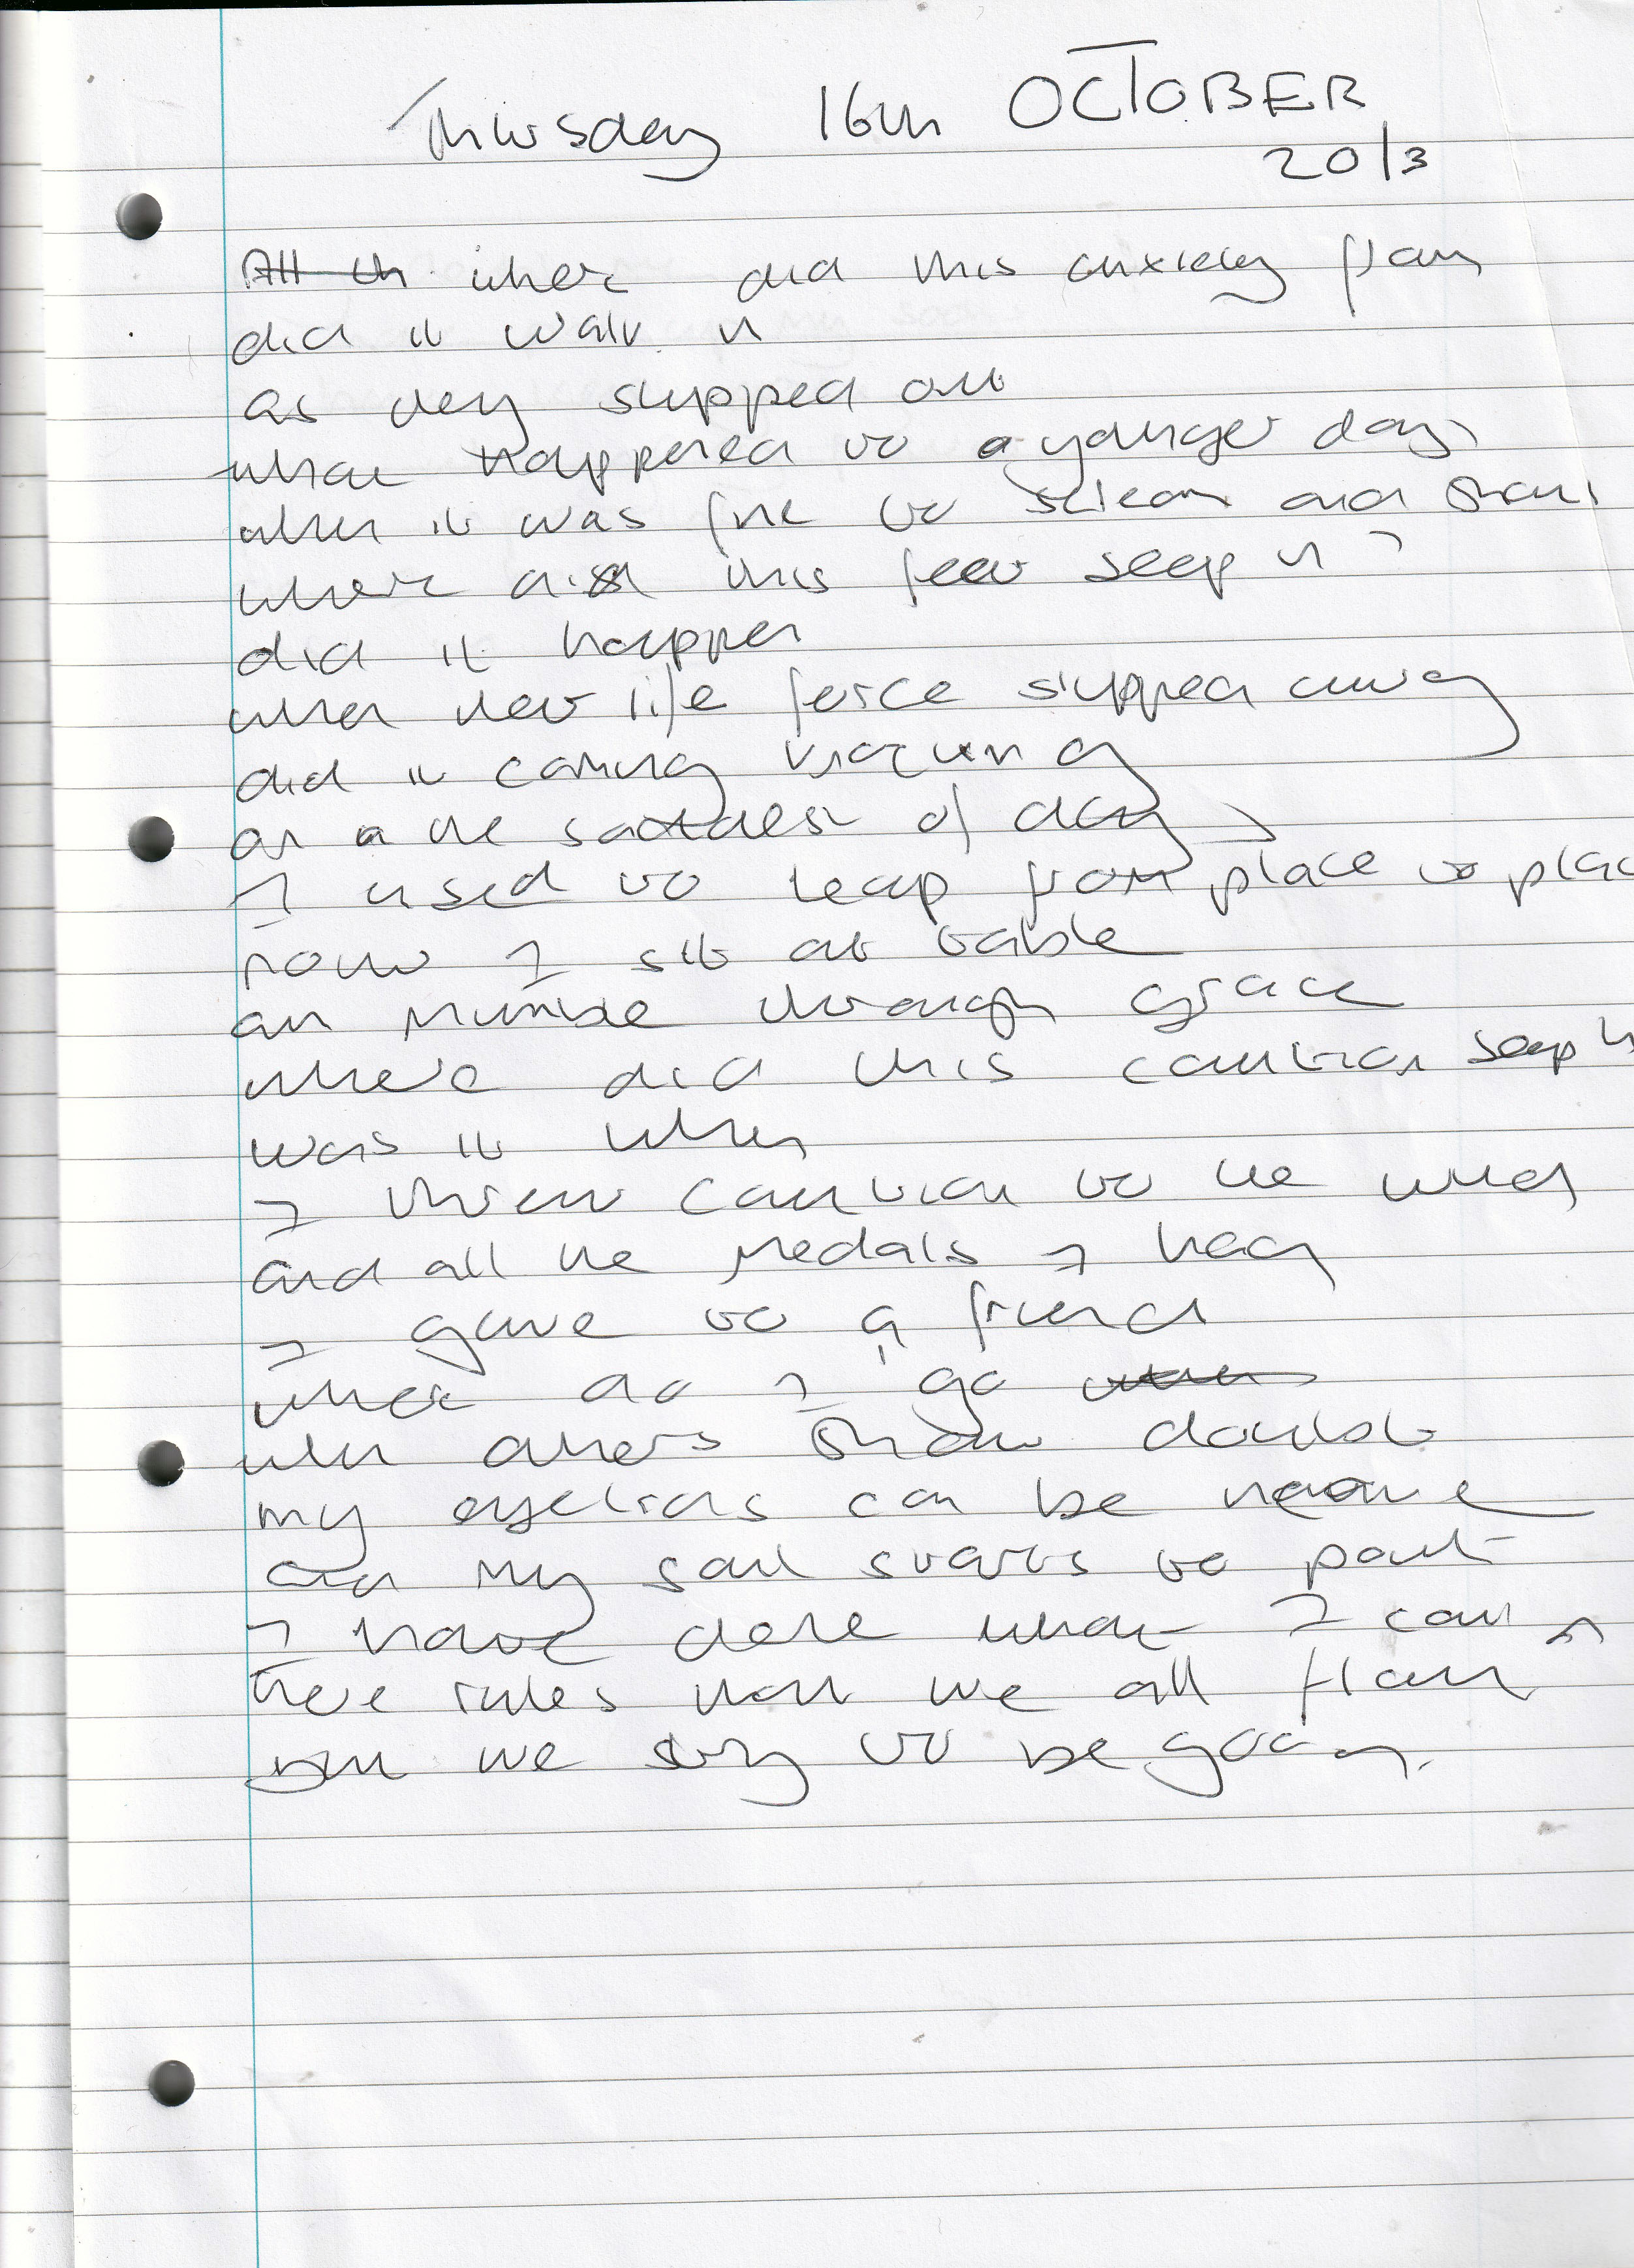 Thursday 16th OCTOBER
2013
All th where did this anxiety from
did it walk in
as they slipped out
what happened to a younger day
when it was fine to scream and shout
where did this fear seep in?
did it happen
when her life force slipped away
did it coming
on the saddest of days
I used to leap from place to place
now I sit at table
an mumble through grace
where did this caution seep in
was it when
I threw caution to the wind
and all the medals I had
I gave to a friend
where do I go when
when others show doubt
my eyelids can be
and my soul starts to
I have done what I can
these rules that we all
but we say to be good.